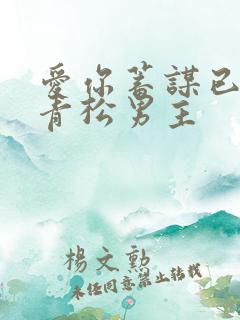 愛你蓄謀已
青松男主
楊文勳
未經同意禁止轉載